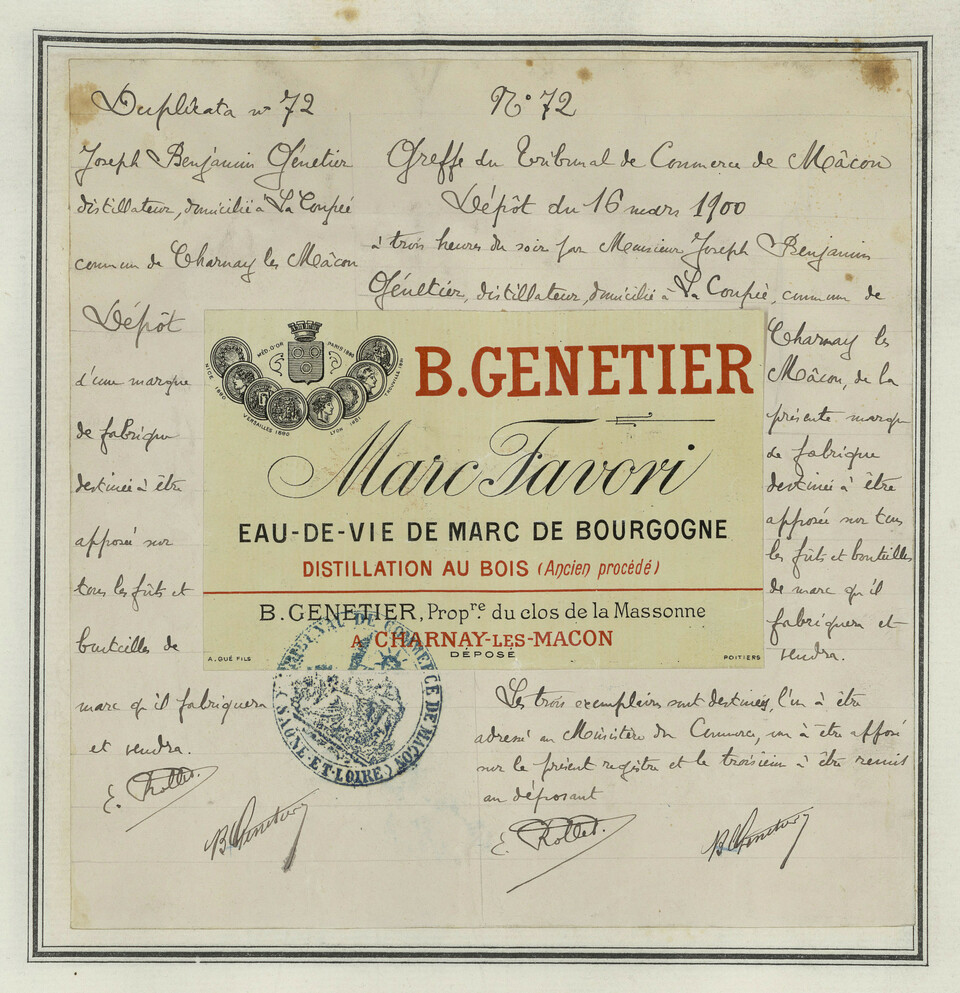 Duplikata nº 72
Joseph Benjamin Génetier
distillateur, domicilié à La Coupée
commune de Charnay les Mâcon
Dépôt
d'une marque
de fabrique
destinée à être
apposée sur
tous les fûts et
bouteilles de
marc qu'il fabriquera
et vendra.
E. Rollet
B Genetier
Nº 72
Greffe du Tribunal de Commerce de Mâcon
Dépôt du 16 mars 1900
à trois heures du soir par Monsieur Joseph Benjamin
Génetier, distillateur, domicilié à La Coupée, commune de
Charnay les
Mâcon, de la
présente marque
de fabrique
destinée à être
apposée sur tous
les fûts et bouteilles
de marc qu'il
fabriquera et
vendra.
NICE MÉD. D'OR PARIS 1890
VERSAILLES 1890 LYON TROUVILLE
B. GENETIER
Marc Favori
EAU-DE-VIE DE MARC DE BOURGOGNE
DISTILLATION AU BOIS (Ancien procédé)
B. GENETIER, Propre. du clos de la Massonne
A CHARNAY-LES-MACON
DÉPOSÉ
A. GUÉ FILS POITIERS
TRIBUNAL DE COMMERCE DE MACON (SAONE-ET-LOIRE)
Les trois exemplaires sont destinés, l'un à être
adressé au Ministère du Commerce, un à être apposé
sur le présent registre et le troisième à être remis
au déposant
E. Rollet
B Genetier